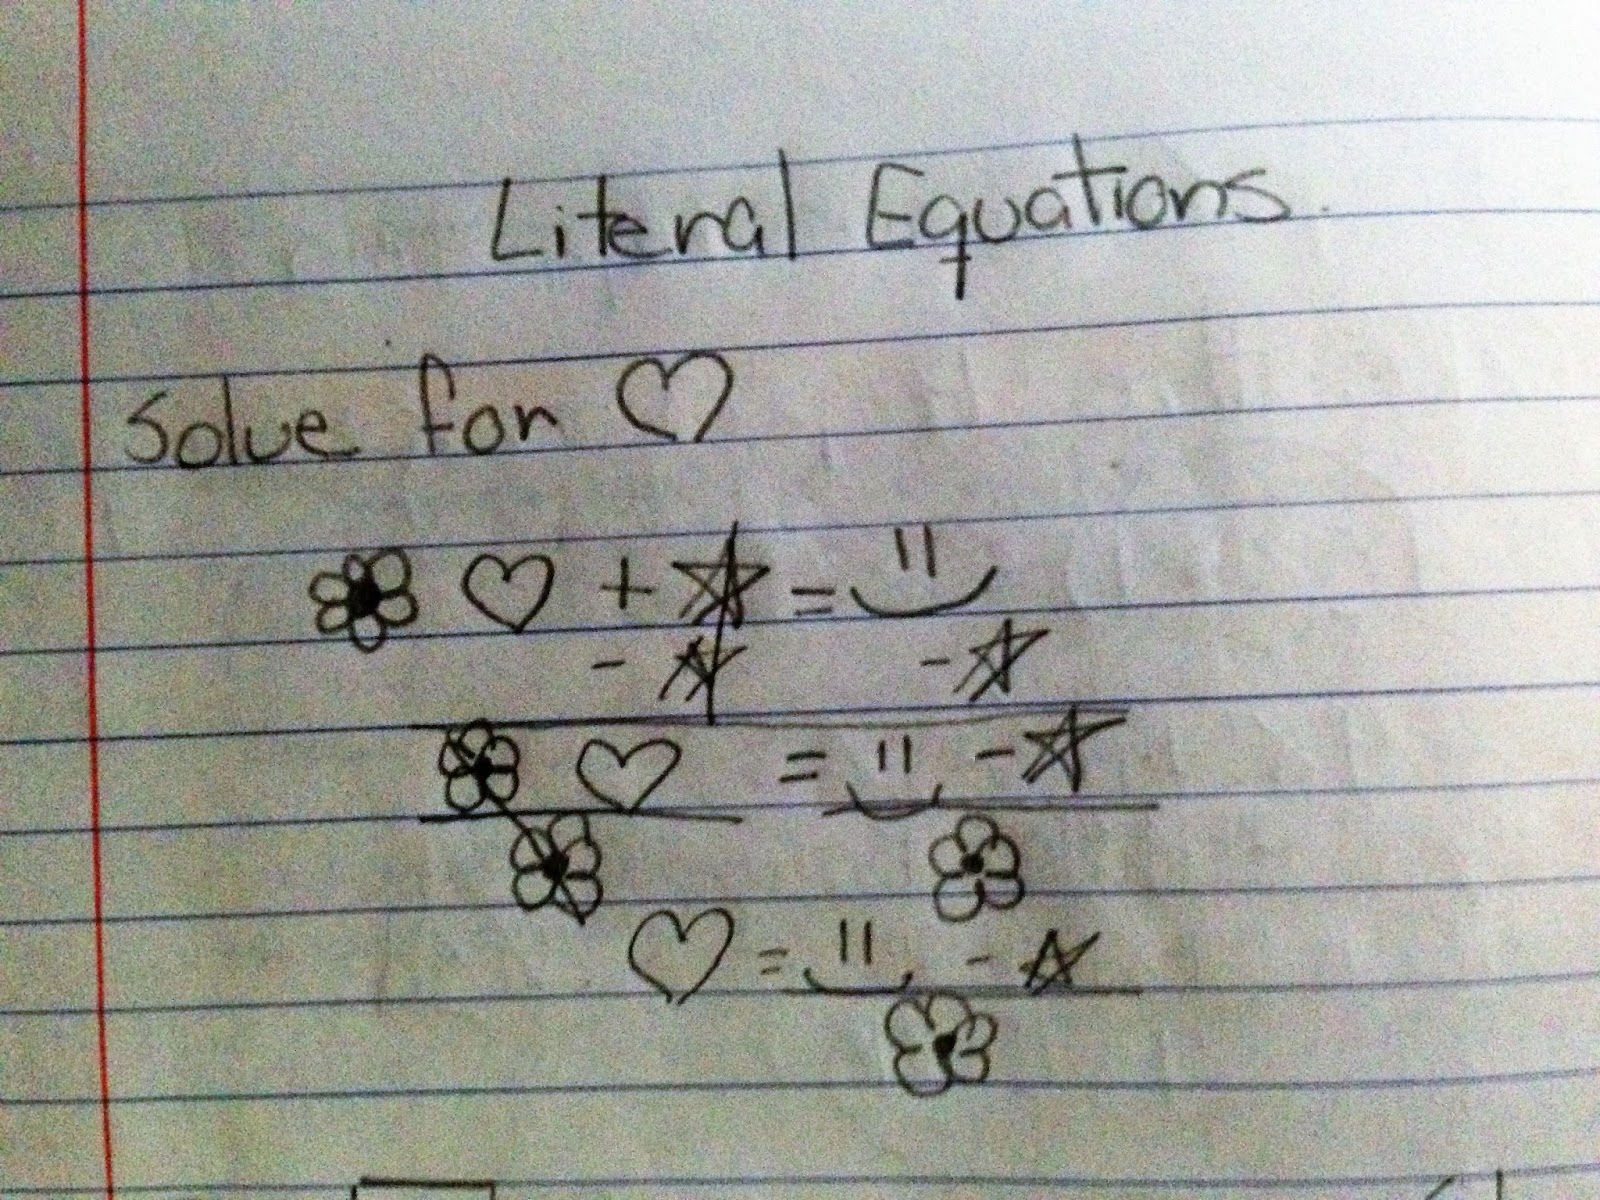 Literal Equations.
Solve for ♡
✿ ♡ + ☆ = ü
- ☆ - ☆
✿ ♡ = ü - ☆
✿ ✿
♡ = ü - ☆
✿